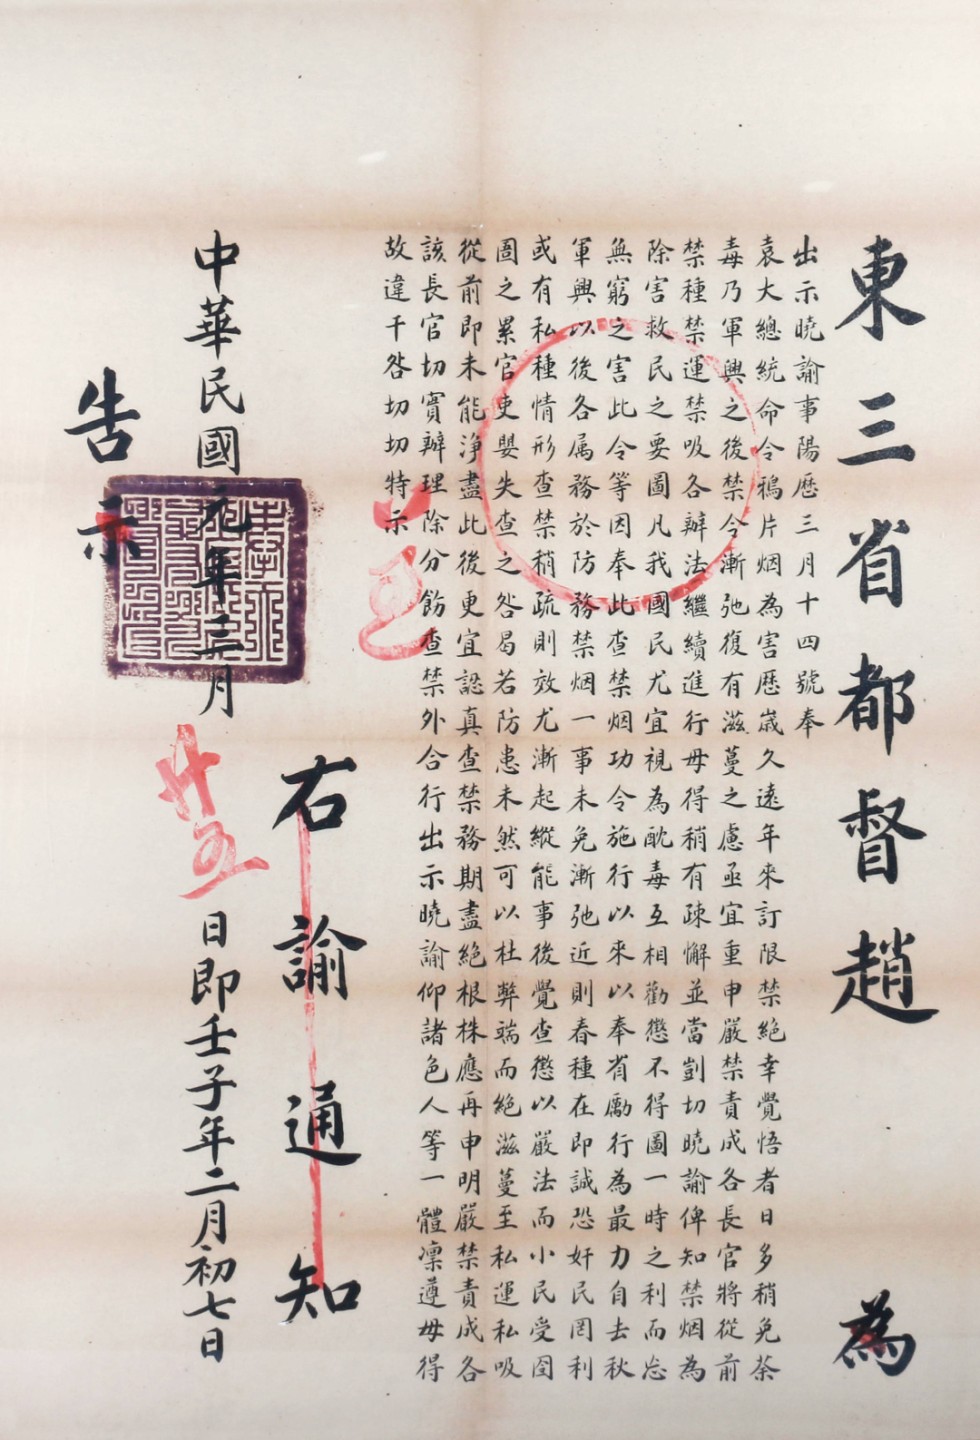 東三省都督趙為
出示曉諭事陽歷三月十四號奉
袁大總統命令鴉片烟為害歷歲久遠年來訂限禁絕幸覺悟者日多稍免荼
毒乃軍興之後禁令漸弛復有滋蔓之慮亟宜重申嚴禁責成各長官將從前
禁種禁運禁吸各辦法繼續進行毋得稍有疎懈並當剴切曉諭俾知禁烟為
除害救民之要圖凡我國民尤宜視為酖毒互相勸懲不得圖一時之利而忘
無窮之害此令等因奉此查禁烟功令施行以來以奉省勵行為最力自去秋
軍興以後各属務於防務禁烟一事未免漸弛近則春種在即誠恐奸民罔利
或有私種情形查禁稍疏則效尤漸起縱能事後覺查懲以嚴法而小民受囹
圄之累官吏嬰失查之咎曷若防患未然可以杜弊端而絕滋蔓至私運私吸
從前即未能淨盡此後更宜認真查禁務期盡絕根株應再申明嚴禁責成各
該長官切實辦理除分飭查禁外合行出示曉諭仰諸色人等一體凜遵毋得
故違干咎切切特示
右諭通知
中華民國元年三月廿五日即壬子年二月初七日
告示